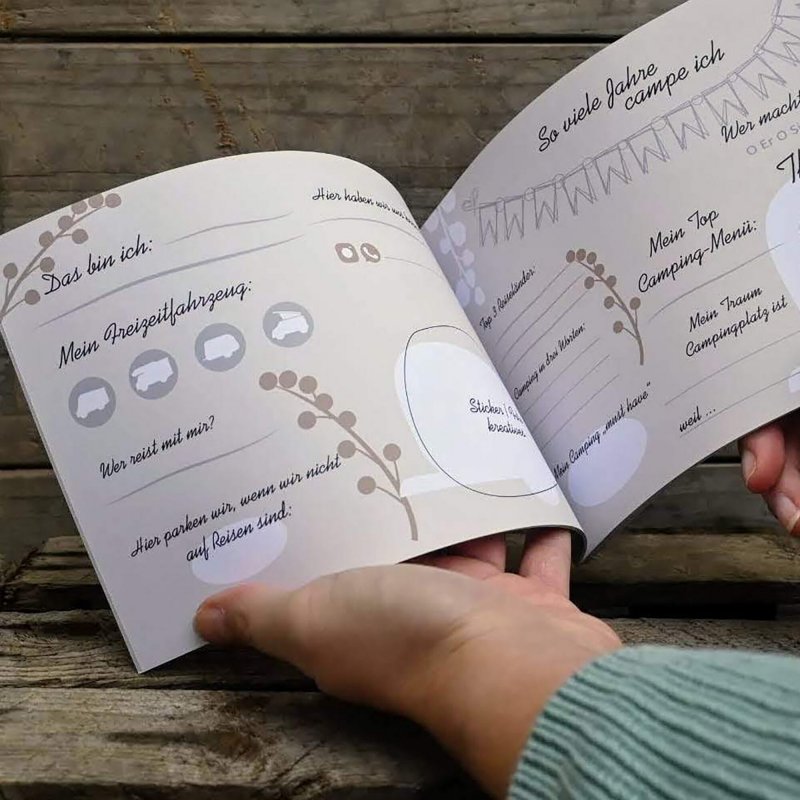 Das bin ich:
Hier haben wir uns
Mein Freizeitfahrzeug:
Wer reist mit mir?
Sticker |
kreatives
Hier parken wir, wenn wir nicht
auf Reisen sind:
So viele Jahre
campe ich
Wer macht
O Er O
Top 3 Reiseländer:
Mein Top
Camping-Menü:
Camping in drei Worten:
Mein Traum
Campingplatz ist
Mein Camping „must have“
weil ...